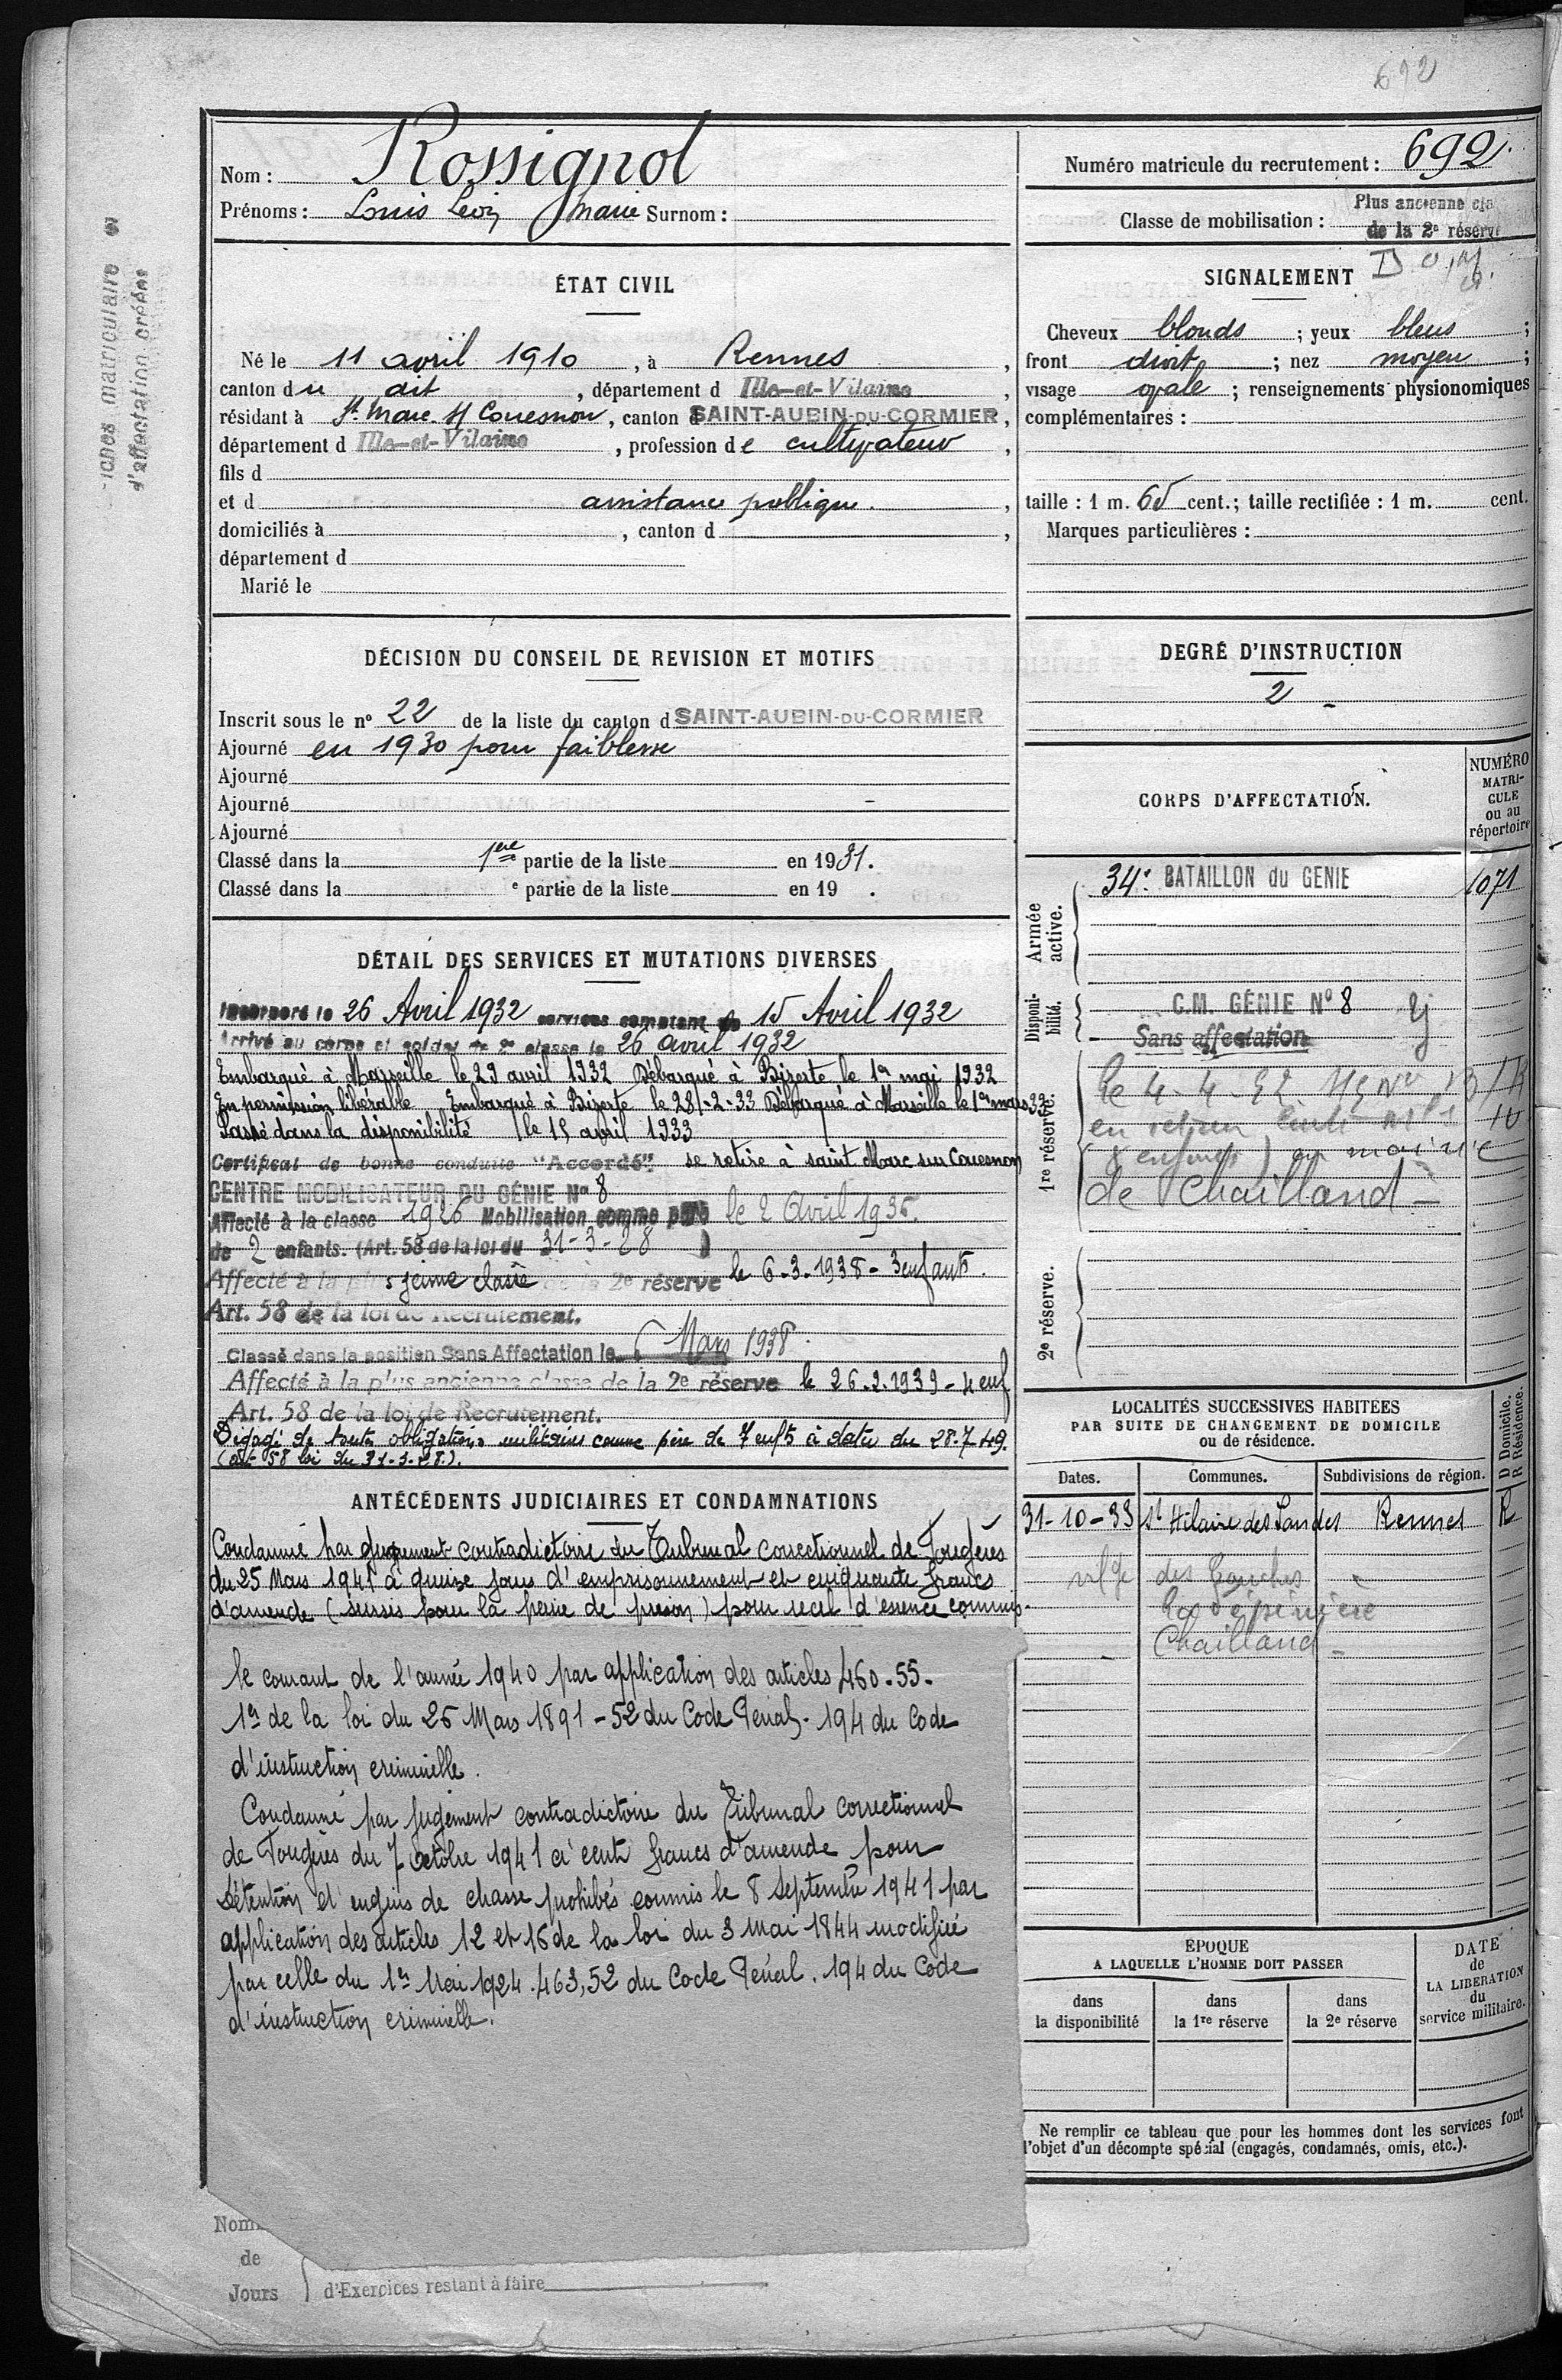 692
Nom : Rossignol
Prénoms : Louis Léon Marie Surnom :
Numéro matricule du recrutement : 692
Classe de mobilisation : Plus ancienne cla
de la 2e réserve
fiches matriculaire et
d'affectation créées
ÉTAT CIVIL
Né le 11 avril 1910, à Rennes,
canton du dit, département d Ille-et-Vilaine
résidant à St. Marc s/ Couesnon, canton d SAINT-AUBIN-DU-CORMIER,
département d Ille-et-Vilaine, profession de cultivateur,
fils d
et d assistance publique.,
domiciliés à , canton d ,
département d
Marié le
SIGNALEMENT
Cheveux blonds ; yeux bleus ;
front droit ; nez moyen ;
visage ovale ; renseignements physionomiques
complémentaires :
taille : 1 m. 65 cent.; taille rectifiée : 1 m. cent.
Marques particulières :
DÉCISION DU CONSEIL DE REVISION ET MOTIFS
Inscrit sous le nº 22 de la liste du canton d SAINT-AUBIN-DU-CORMIER
Ajourné en 1930 pour faiblesse
Ajourné
Ajourné
Ajourné
Classé dans la 1ère partie de la liste en 1931.
Classé dans la e partie de la liste en 19 .
DEGRÉ D'INSTRUCTION
2
CORPS D'AFFECTATION.
NUMÉRO
MATRI-
CULE
ou au
répertoire
Armée
active.
34e BATAILLON du GENIE 1071
Disponi-
bilité.
C.M. GÉNIE Nº 8
Sans affectation
1re réserve.
le 4-4-52
en
enfants)
de Chailland -
2e réserve.
DÉTAIL DES SERVICES ET MUTATIONS DIVERSES
Incorporé le 26 Avril 1932 services comptant du 15 Avril 1932
Arrivé au corps et soldat de 2e classe le 26 avril 1932
Embarqué à Marseille le 29 avril 1932 Débarqué à Bizerte le 1er mai 1932
En permission libérable Embarqué à Bizerte le 28-2-33 Débarqué à Marseille le 1er mars 33
Passé dans la disponibilité le 15 avril 1933
Certificat de bonne conduite "Accordé" se retire à saint Marc sur Couesnon
CENTRE MOBILISATEUR DU GÉNIE Nº 8
Affecté à la classe 1926 Mobilisation comme père le 2 Avril 1936.
de 2 enfants. (Art. 58 de la loi du 31-3-28)
Affecté à la plus jeune classe de la 2e réserve le 6-3-1938 - 3 enfants.
Art. 58 de la loi de Recrutement.
Classé dans la position Sans Affectation le 6 Mars 1938.
Affecté à la plus ancienne classe de la 2e réserve le 26.2.1939 - 4 enf
Art. 58 de la loi de Recrutement.
Dégagé de toutes obligations militaires comme père de 7 enfts à dater du 28.7.49.
(art 58 loi du 31-3-28).
LOCALITÉS SUCCESSIVES HABITÉES
PAR SUITE DE CHANGEMENT DE DOMICILE
ou de résidence.
D Domicile.
R Résidence.
Dates. Communes. Subdivisions de région.
31-10-33 St Hilaire des Landes Rennes R
des
La
Chailland -
ANTÉCÉDENTS JUDICIAIRES ET CONDAMNATIONS
Condamné par jugement contradictoire du Tribunal correctionnel de Fougères
du 25 Mars 1941 à quinze jours d'emprisonnement et cinquante francs
d'amende (sursis pour la peine de prison) pour recel d'essence commis
le courant de l'année 1940 par application des articles 460-55-
1er de la loi du 26 Mars 1891 - 52 du Code Pénal - 194 du Code
d'instruction criminelle.
Condamné par jugement contradictoire du Tribunal correctionnel
de Fougères du 7 Octobre 1941 à cent francs d'amende pour
détention d'engins de chasse prohibés commis le 8 septembre 1941 par
application des articles 12 et 16 de la loi du 3 mai 1844 modifiée
par celle du 1er Mai 1924. 463, 52 du Code Pénal. 194 du Code
d'instruction criminelle.
ÉPOQUE
A LAQUELLE L'HOMME DOIT PASSER
DATE
de
LA LIBERATION
du
service militaire.
dans
la disponibilité
dans
la 1re réserve
dans
la 2e réserve
Ne remplir ce tableau que pour les hommes dont les services font
l'objet d'un décompte spécial (engagés, condamnés, omis, etc.).
Nom
de
Jours
d'Exercices restant à faire